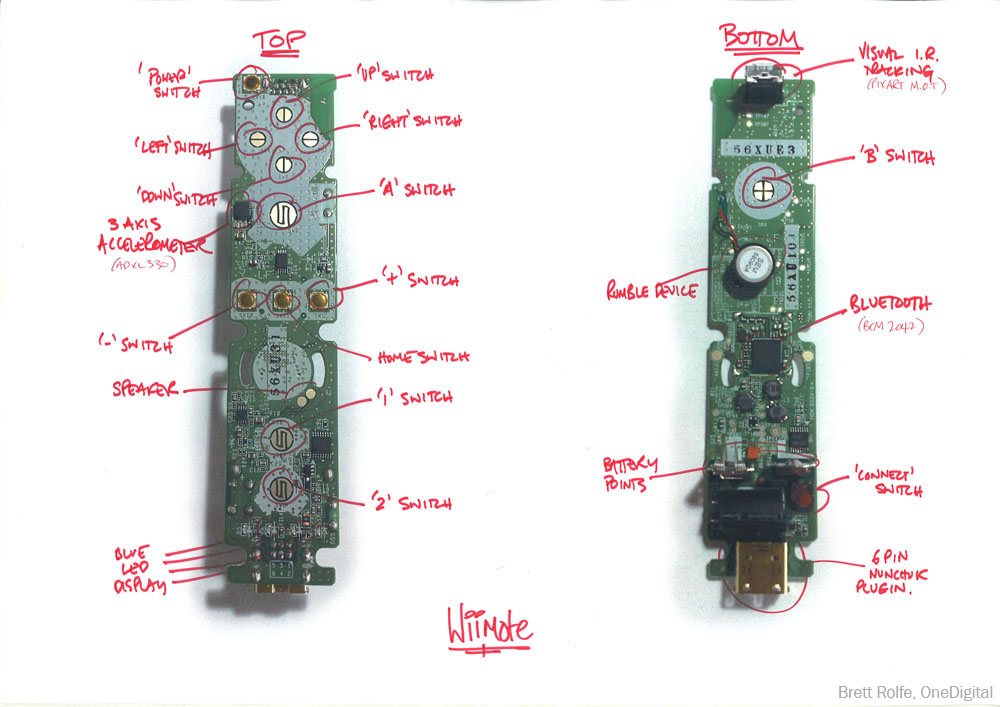 TOP
'POWER'
SWITCH
'UP' SWITCH
'RIGHT' SWITCH
'LEFT' SWITCH
'DOWN' SWITCH
'A' SWITCH
3 AXIS
ACCELEROMETER
(ADXL330)
'+' SWITCH
'-' SWITCH
HOME SWITCH
56XUE3
SPEAKER
'1' SWITCH
'2' SWITCH
BLUE
LED
DISPLAY
BOTTOM
VISUAL I.R.
TRACKING
(PIXART M.O.T)
56XUE3
'B' SWITCH
56XU101
RUMBLE DEVICE
BLUETOOTH
(BCM 2042)
BATTERY
POINTS
'CONNECT'
SWITCH
6 PIN
NUNCHUK
PLUGIN.
WiiMote
Brett Rolfe, OneDigital